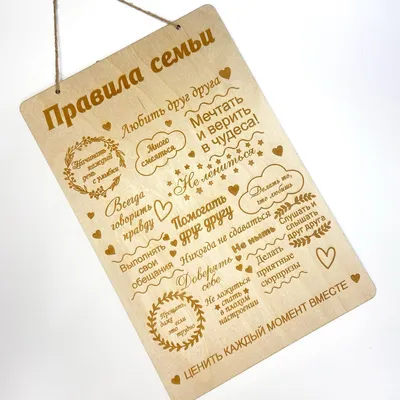 Правила семьи
Любить друг друга
Начинать
каждый
день
с улыбки
Много
смеяться
Мечтать
и верить
в чудеса!
Не лениться
Всегда
говорить
правду
Помогать
друг другу
Делать то,
что любишь
Выполнять
свои
обещания
Никогда не сдаваться
Не ныть
Слушать и
слышать
друг друга
Доверять
себе
Делать
приятные
сюрпризы
Прощать,
даже
если
это
трудно
Не ложиться
спать
в плохом
настроении
ЦЕНИТЬ КАЖДЫЙ МОМЕНТ ВМЕСТЕ